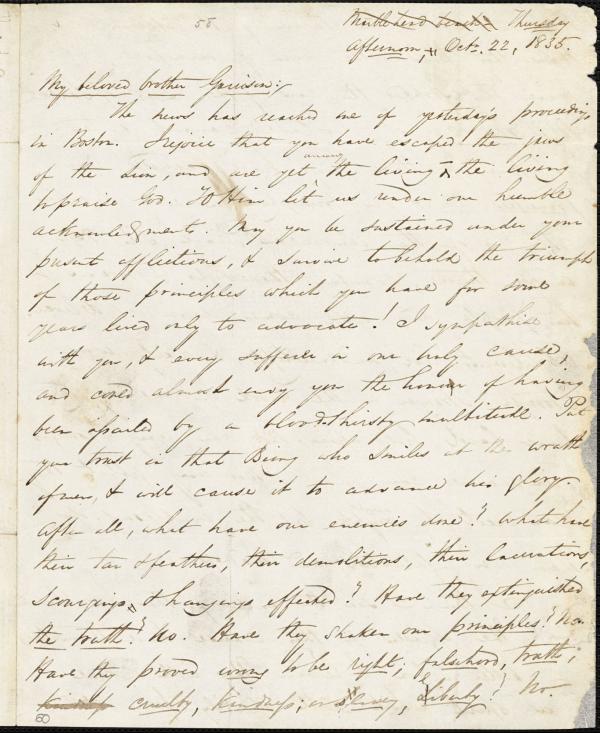 58
Marblehead Beach Thursday
Afternoon, Oct. 22, 1835.
My beloved brother Garrison:
The news has reached me of yesterday's proceedings
in Boston. I rejoice that you have escaped the jaws
of the Lion, and are yet among the living – the living
to praise God. To Him let us render our humble
acknowledgments. May you be sustained under your
present afflictions, & survive to behold the triumph
of those principles which you have for some
years lived only to advocate! I sympathise
with you, & every sufferer in our holy cause,
and could almost envy you the honor of having
been assailed by a bloodthirsty multitude. Put
your trust in that Being who smiles at the wrath
of men, & will cause it to advance his glory.
After all, what have our enemies done? What have
their tar & feathers, their demolitions, their lacerations,
scourgings, & hangings effected? Have they extinguished
the truth? No. Have they shaken our principles? No.
Have they proved wrong to be right; falsehood, truth;
kindness cruelty, kindness; or slavery, Liberty? No.
60